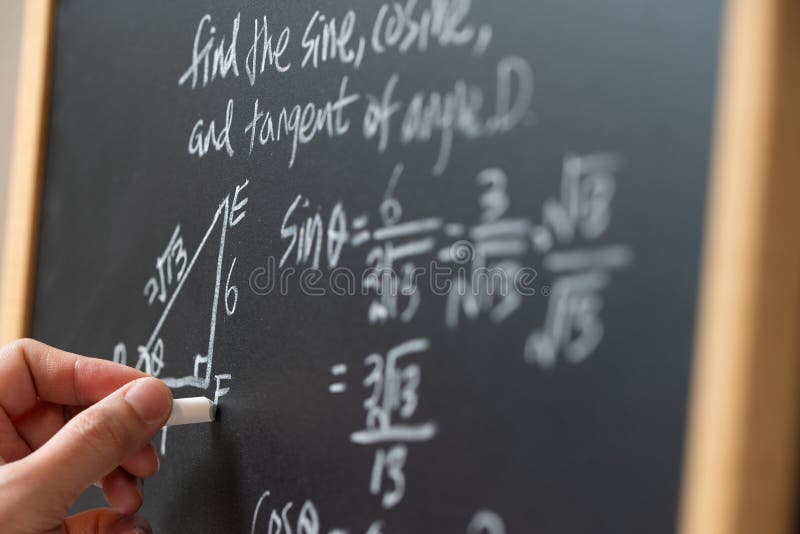 find the sine, cosine,
and tangent of angle D.
E
2√13
6
θ
F
sinθ = 6/2√13 = 3/√13 · √13/√13
= 3√13/13
cosθ =
dreamstime